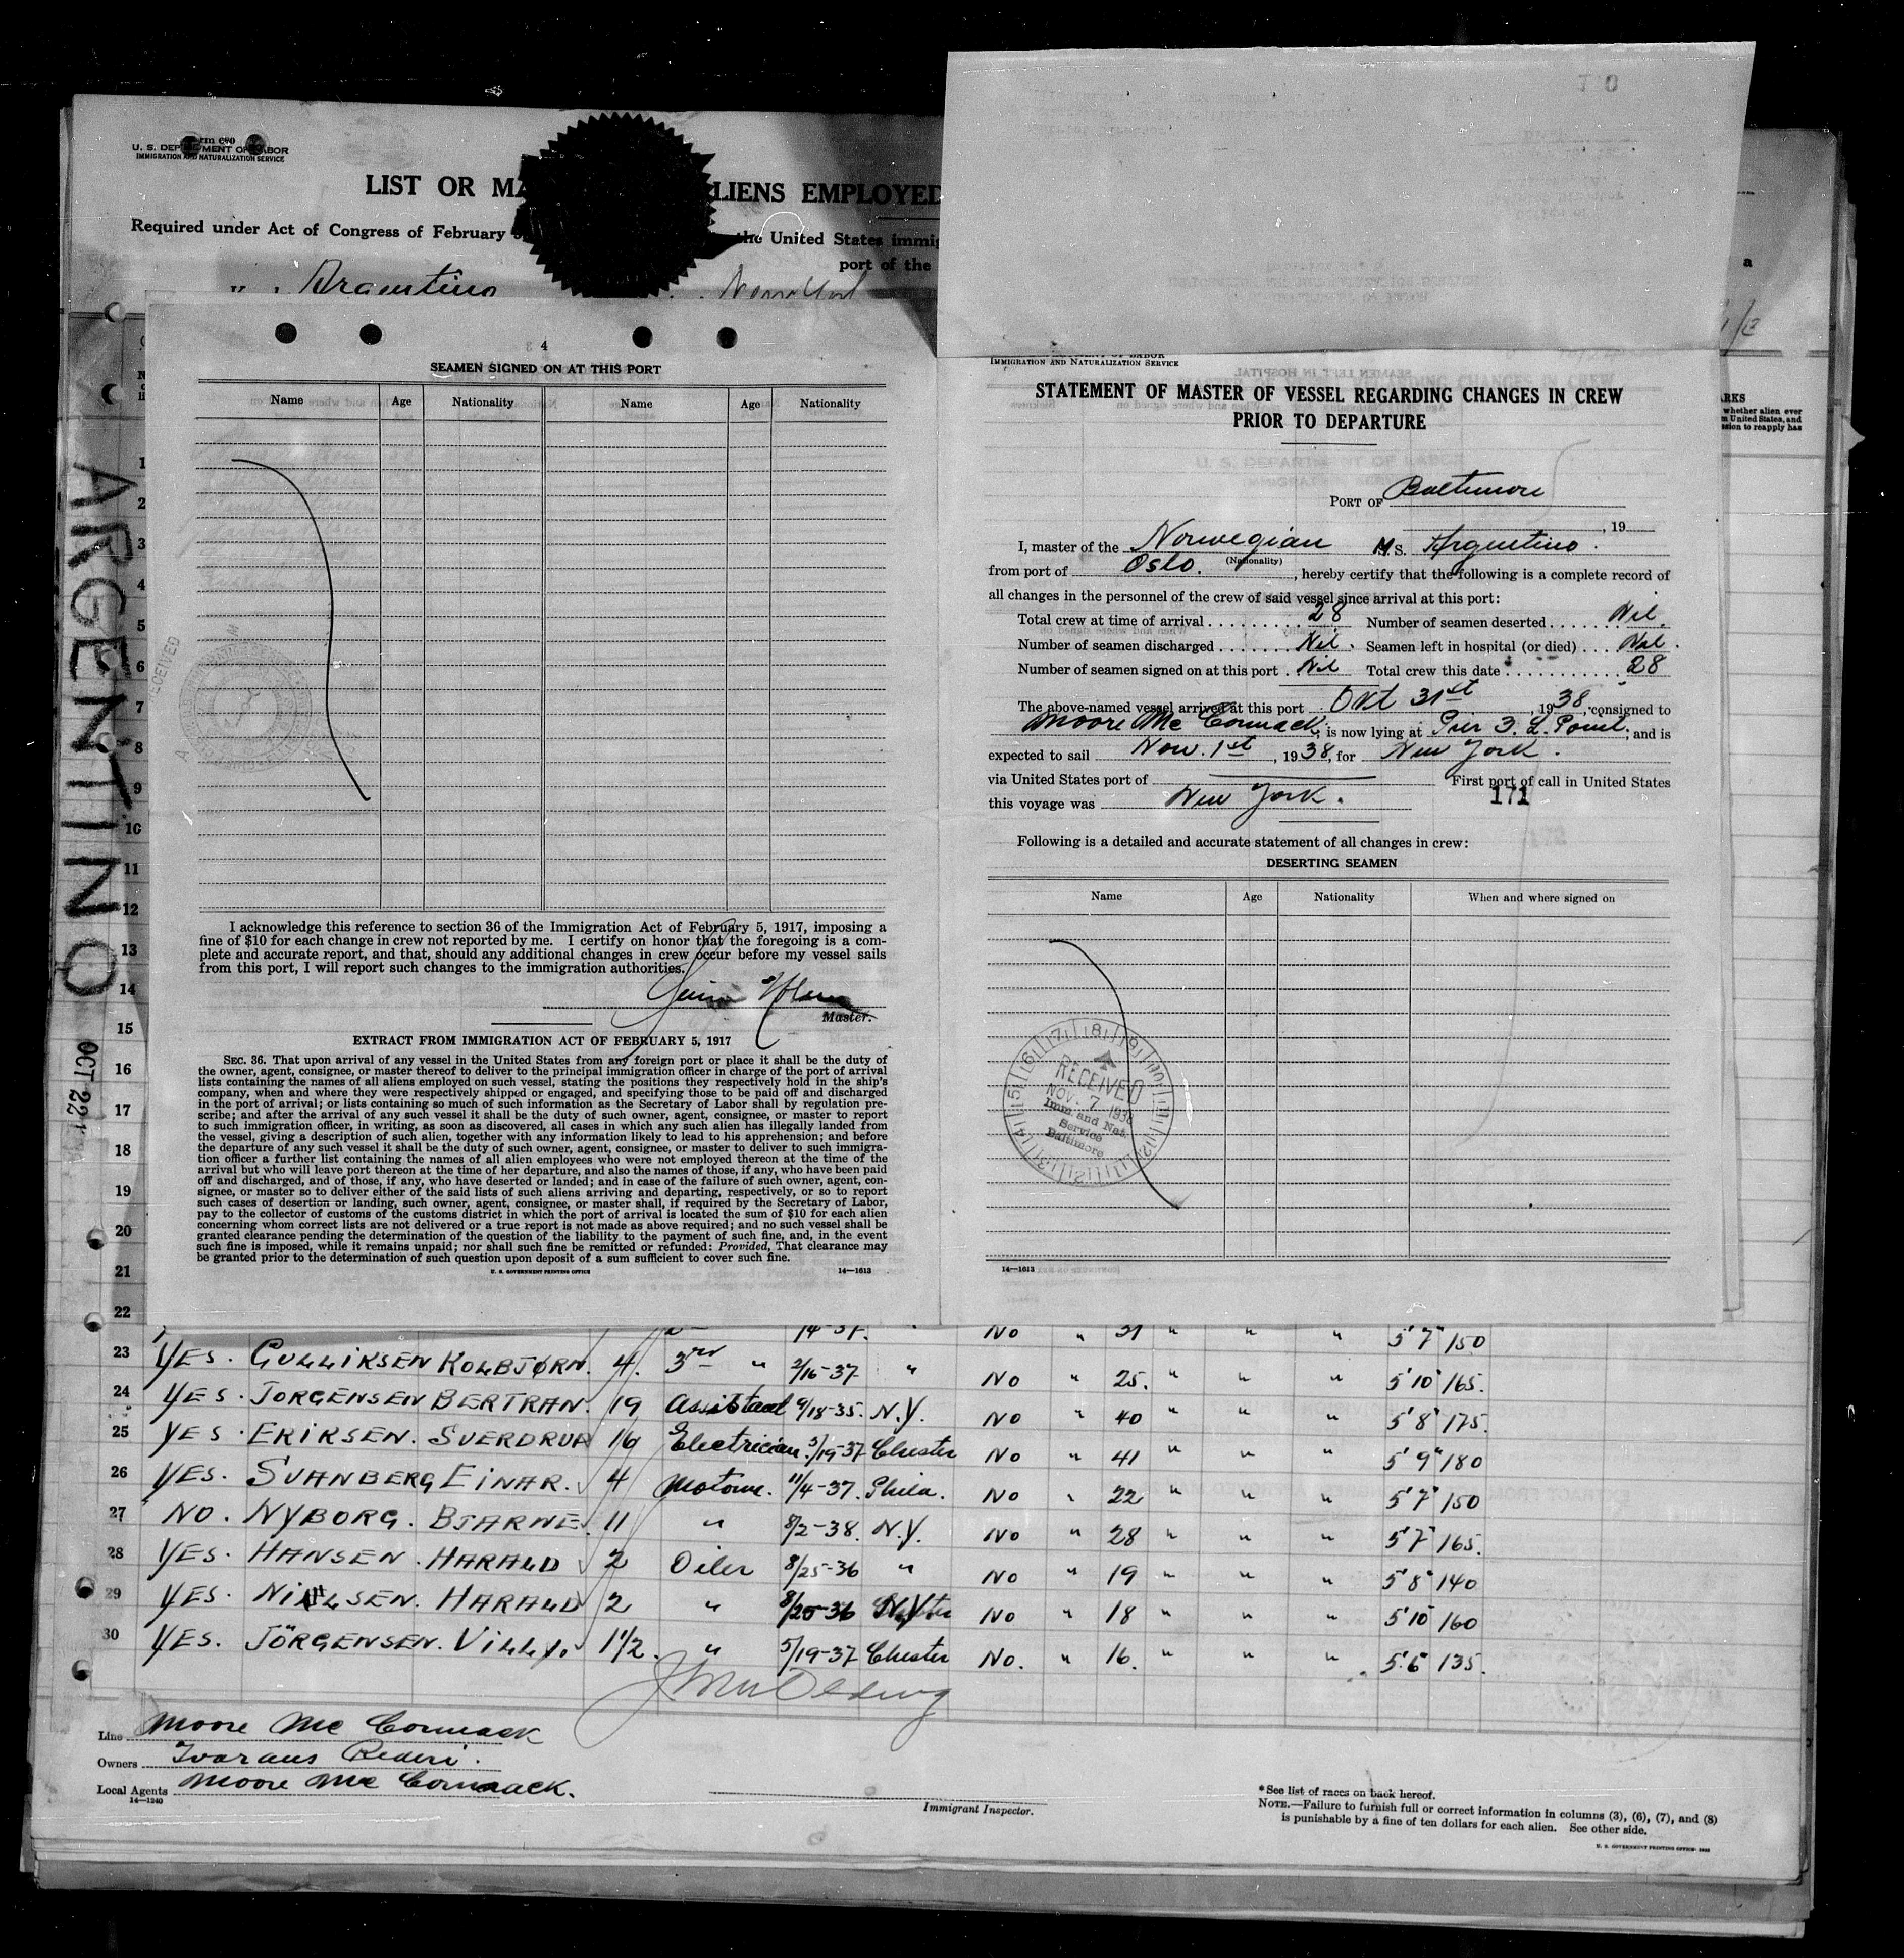 U. S. DEPARTMENT OF LABOR
IMMIGRATION AND NATURALIZATION SERVICE
LIST OR MA LIENS EMPLOYED
Required under Act of Congress of February the United States immig
port of the
Argentino New York
ARGENTINO
OCT 22
4
SEAMEN SIGNED ON AT THIS PORT
Name Age Nationality Name Age Nationality
I acknowledge this reference to section 36 of the Immigration Act of February 5, 1917, imposing a
fine of $10 for each change in crew not reported by me. I certify on honor that the foregoing is a com-
plete and accurate report, and that, should any additional changes in crew occur before my vessel sails
from this port, I will report such changes to the immigration authorities.
Master.
EXTRACT FROM IMMIGRATION ACT OF FEBRUARY 5, 1917
SEC. 36. That upon arrival of any vessel in the United States from any foreign port or place it shall be the duty of
the owner, agent, consignee, or master thereof to deliver to the principal immigration officer in charge of the port of arrival
lists containing the names of all aliens employed on such vessel, stating the positions they respectively hold in the ship's
company, when and where they were respectively shipped or engaged, and specifying those to be paid off and discharged
in the port of arrival; or lists containing so much of such information as the Secretary of Labor shall by regulation pre-
scribe; and after the arrival of any such vessel it shall be the duty of such owner, agent, consignee, or master to report
to such immigration officer, in writing, as soon as discovered, all cases in which any such alien has illegally landed from
the vessel, giving a description of such alien, together with any information likely to lead to his apprehension; and before
the departure of any such vessel it shall be the duty of such owner, agent, consignee, or master to deliver to such immigra-
tion officer a further list containing the names of all alien employees who were not employed thereon at the time of the
arrival but who will leave port thereon at the time of her departure, and also the names of those, if any, who have been paid
off and discharged, and of those, if any, who have deserted or landed; and in case of the failure of such owner, agent, con-
signee, or master so to deliver either of the said lists of such aliens arriving and departing, respectively, or so to report
such cases of desertion or landing, such owner, agent, consignee, or master shall, if required by the Secretary of Labor,
pay to the collector of customs of the customs district in which the port of arrival is located the sum of $10 for each alien
concerning whom correct lists are not delivered or a true report is not made as above required; and no such vessel shall be
granted clearance pending the determination of the question of the liability to the payment of such fine, and, in the event
such fine is imposed, while it remains unpaid; nor shall such fine be remitted or refunded: Provided, That clearance may
be granted prior to the determination of such question upon deposit of a sum sufficient to cover such fine.
U. S. GOVERNMENT PRINTING OFFICE 14—1613
IMMIGRATION AND NATURALIZATION SERVICE
STATEMENT OF MASTER OF VESSEL REGARDING CHANGES IN CREW
PRIOR TO DEPARTURE
PORT OF Baltimore
, 19
I, master of the Norwegian M.S. Argentino.
(Nationality)
from port of Oslo. , hereby certify that the following is a complete record of
all changes in the personnel of the crew of said vessel since arrival at this port:
Total crew at time of arrival 28 Number of seamen deserted Nil.
Number of seamen discharged Nil. Seamen left in hospital (or died) Nil.
Number of seamen signed on at this port Nil Total crew this date 28
The above-named vessel arrived at this port Okt 31st, 1938, consigned to
Moore Mc Cormack; is now lying at Pier 3. L. Point; and is
expected to sail Nov. 1st, 1938, for New York.
via United States port of First port of call in United States
this voyage was New York. 171
Following is a detailed and accurate statement of all changes in crew:
DESERTING SEAMEN
Name Age Nationality When and where signed on
RECEIVED
NOV 7 1938
Imm. and Nat.
Service
Baltimore
14—1613
RKS
whether alien ever
m United States, and
ssion to reapply has
1
2
3
4
5
6
7
8
9
10
11
12
13
14
15
16
17
18
19
20
21
22 No " 5'7" 150
23 YES. GULLIKSEN KOLBJØRN. 4. 3rd " 2/16-37 " No " 25. " " " 5'10" 165.
24 YES. JORGENSEN BERTRAN. 19 Assistant 9/18-35. N.Y. No " 40 " " " 5'8" 175.
25 YES. ERIKSEN. SVERDRUP 19 Electrician. 5/19-37 Chester No " 41 " " " 5'9" 180
26 YES. SVANBERG EINAR. 4 Motorm. 11/4-37. Phila. No " 22 " " " 5'7" 150
27 NO. NYBORG. BJARNE 11 " 8/2-38. N.Y. No " 28 " " " 5'7" 165.
28 YES. HANSEN. HARALD 2 Oiler 8/25-36 " No " 19 " " " 5'8" 140
29 YES. NIELSEN. HARALD 2 " 8/25-36 N.Y. No " 18 " " " 5'10" 160
30 YES. JÖRGENSEN. VILLY. 1 1/2. " 5/19-37 Chester No. " 16. " " " 5'6" 135.
Line Moore Mc Cormack
Owners Ivarans Rederi.
Local Agents Moore Mc Cormack.
14—1240
Immigrant Inspector.
*See list of races on back hereof.
NOTE.—Failure to furnish full or correct information in columns (3), (6), (7), and (8)
is punishable by a fine of ten dollars for each alien. See other side.
U. S. GOVERNMENT PRINTING OFFICE